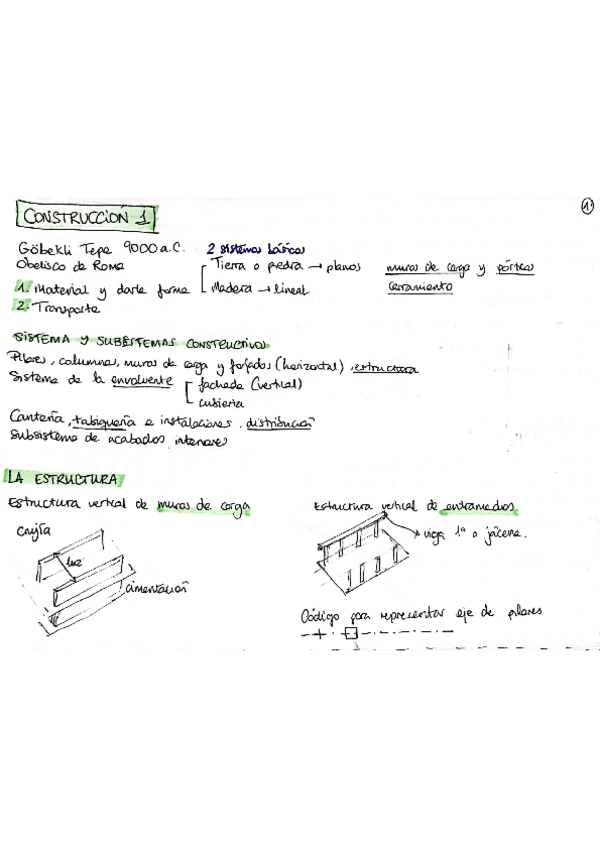 CONSTRUCCIÓN 1
1
Göbekli Tepe 9000 a.C.
2 sistemas básicos
Obelisco de Roma
Tierra o piedra → planos
muros de carga y pórticos
1. Material y darle forma
Madera → lineal
cerramiento
2. Transporte
SISTEMA Y SUBSISTEMAS CONSTRUCTIVOS
Pilares, columnas, muros de carga y forjados (horizontal). estructura
Sistema de la envolvente
fachada (vertical)
cubierta
Cantería, tabiquería e instalaciones. distribución
Subsistema de acabados interiores
LA ESTRUCTURA
Estructura vertical de muros de carga
Estructura vertical de entramados
Crujía
luz
cimentación
viga 1ª o jácena.
Código para representar eje de pilares